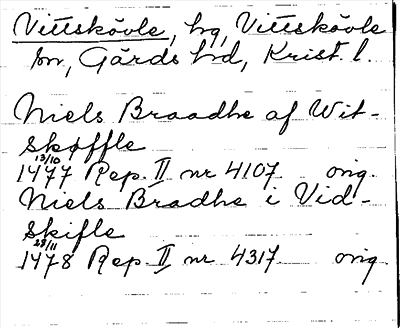 Vittskövle, hg, Vittskövle
sn, Gärds hd, Krist. l.
Niels Braadhe af Wit-
skøffle
13/10
1477 Rep. II nr 4107 orig.
Niels Bradhe i Vid-
skifle
28/11
1478 Rep. II nr 4317 orig